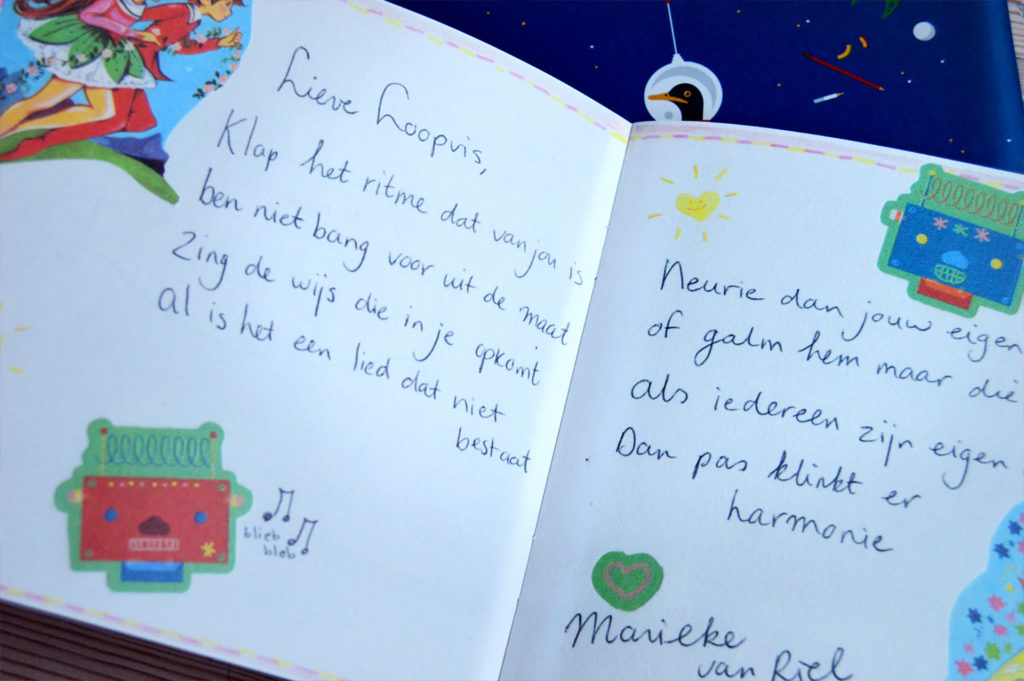 Lieve Loopvis,
Klap het ritme dat van jou is
ben niet bang voor uit de maat
Zing de wijs die in je opkomt
al is het een lied dat niet
bestaat
blieb
bleb
Neurie dan jouw eigen
of galm hem maar die
als iedereen zijn eigen
Dan pas klinkt er
harmonie
Marieke
van Riel